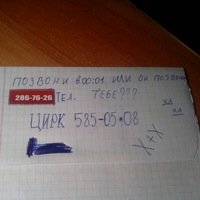 ПОЗВОНИ В 00:01 ИЛИ ОН ПОЗВОНИТ
286-76-26 ТЕЛ. ТЕБЕ???
ХД
ХД
ЦИРК 585-05*08
Х+Х